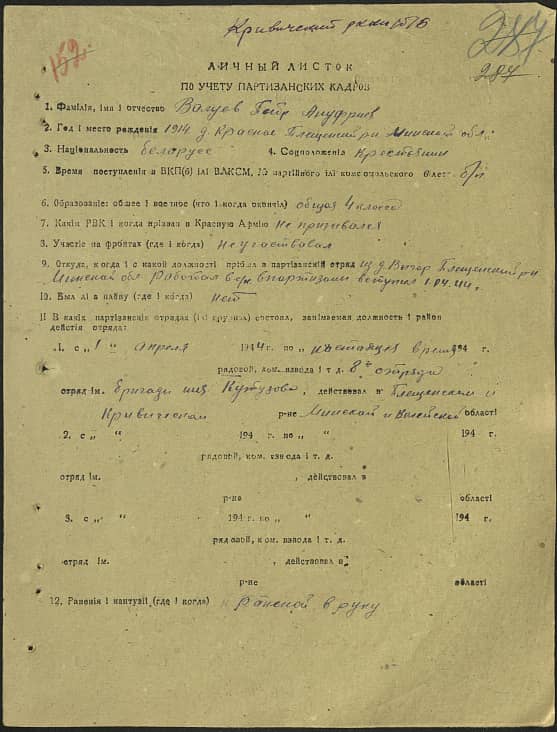 Кривичский
152.
287
287
ЛИЧНЫЙ ЛИСТОК
ПО УЧЕТУ ПАРТИЗАНСКИХ КАДРОВ
1. Фамілія, імя і отчество Валуев Петр Ануфриев
2. Год і место рождения 1914 д. Красное Плещенский р-н Минской обл.
3. Національность белорус 4. Соцположенія Крестьянин
5. Время поступленія в ВКП(б) ілі ВЛКСМ, № партийного ілі комсомольского білета б/п
6. Образованіе: общее і военное (что і когда окончіл) общая 4 класса
7. Какім РВК і когда прізван в Красную Армію Не призывался
8. Участіе на фронтах (где і когда) Не участвовал
9. Откуда, когда і с какой должності прібыл в партізанскій отряд из д. Плещенский р-н
Минской обл. Работал в с/х. В партизаны вступил 1.04.44 г.
10. Был лі в плену (где і когда) нет
11 В какіх партізанскіх отрядах (іл групах) состоял, занімаемая должность і район
действія отряда:
.1. с „ 1 “ апреля 1944 г. по „ настоящее время 194 г.
рядовой, ком. взвода і т. д. 8й отряда
отряд ім. Бригады им Кутузова, действовал в Плещенском и
Кривичском р-не Минской и Вилейской області
2. с „ “ 194 г. по „ “ 194 г.
рядовой, ком. взвода і т. д.
отряд ім. , действовал в
р-не області
3. с „ “ 194 г. по „ “ 194 г.
рядовой, ком. взвода і т. д.
отряд ім. , действовал в
р-не області
12. Раненія і кантузіі (где і когда) Раненой в руку